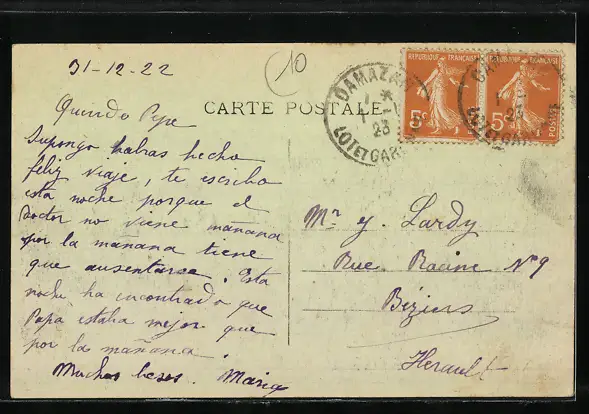 31-12-22
10
Querido Pepe
CARTE POSTALE
Supongo habras hecho
feliz viaje, te escribo
esta noche porque el
doctor no viene mañana
por la mañana tiene
que ausentarse. Esta
noche ha encontrado que
Papa estaba mejor que
por la mañana.
Muchos besos. Maria
REPUBLIQUE FRANÇAISE
5c
REPUBLIQUE FRANÇAISE
5c
POSTES
DAMAZAN
23
LOT ET GAR
Mr J. Lardy
Rue Racine Nº 9
Béziers
Herault